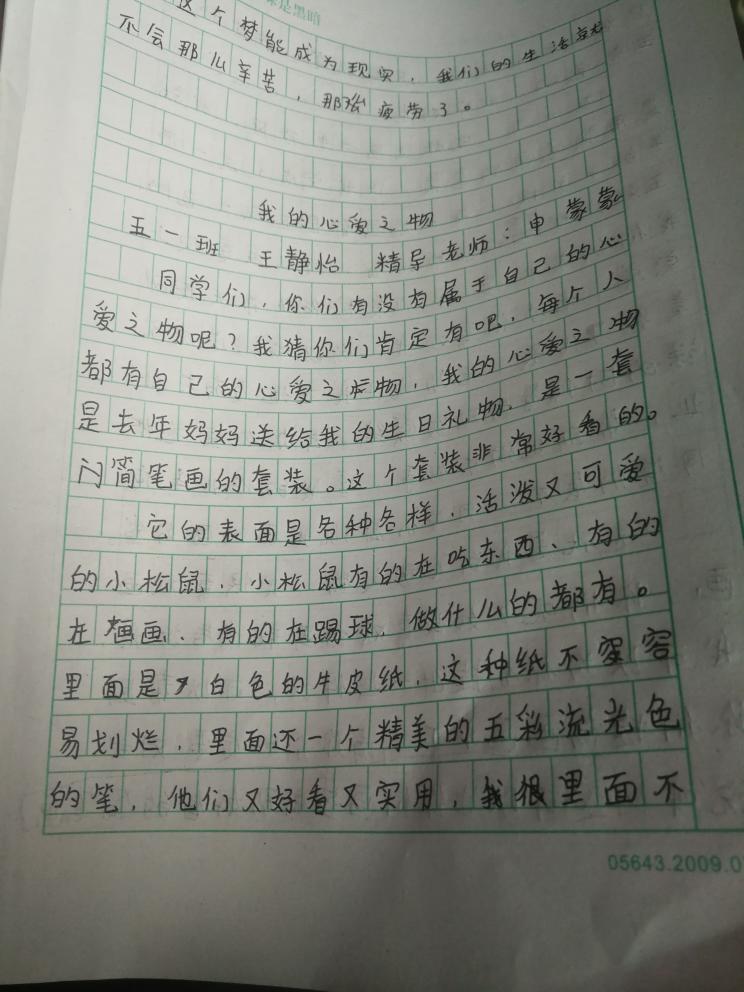 是黑暗
这个梦能成为现实，我们的生活就
不会那么辛苦，那么疲劳了。
我的心爱之物
五一班 王静怡 精导老师：申蒙蒙
同学们，你们有没有属于自己的心
爱之物呢？我猜你们肯定有吧，每个人
都有自己的心爱之物，我的心爱之物
是去年妈妈送给我的生日礼物，是一套
门简笔画的套装。这个套装非常好看的。
它的表面是各种各样，活泼又可爱
的小松鼠，小松鼠有的在吃东西、有的
在画画、有的在踢球，做什么的都有。
里面是白色的牛皮纸，这种纸不容
易划烂，里面还一个精美的五彩流光色
的笔，他们又好看又实用，我很里面不
05643.2009.0